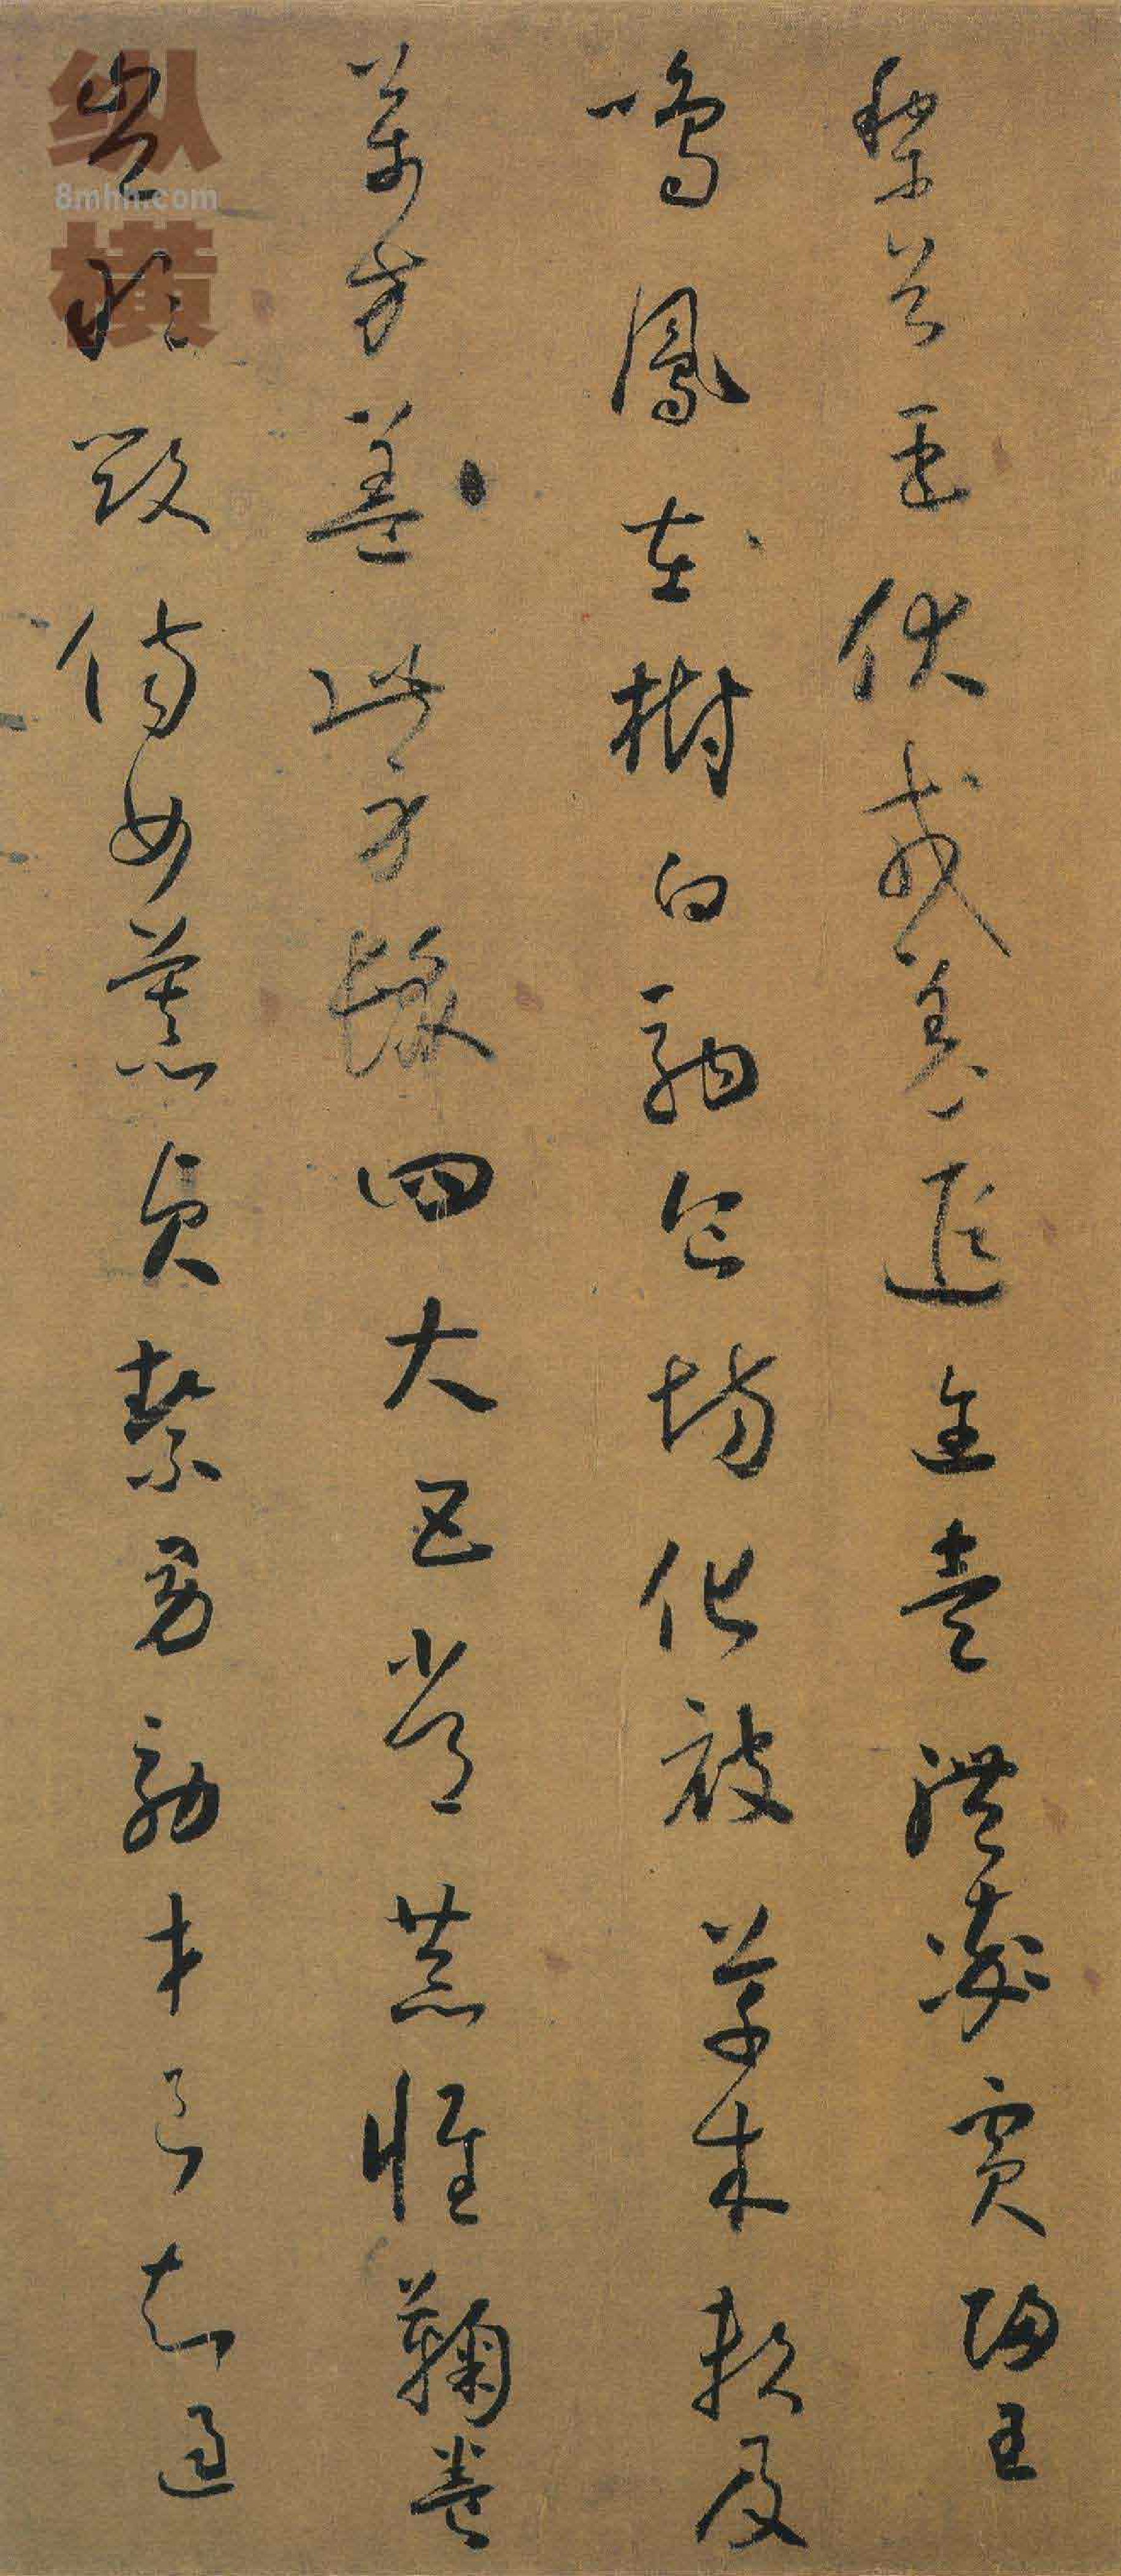 黎首臣伏戎羌遐邇壹體率賓歸王
鳴鳳在樹白駒食場化被草木賴及
萬方蓋此身髮四大五常恭惟鞠養
豈敢毀傷女慕貞絜男效才良知過
纵
8mhh.com
横